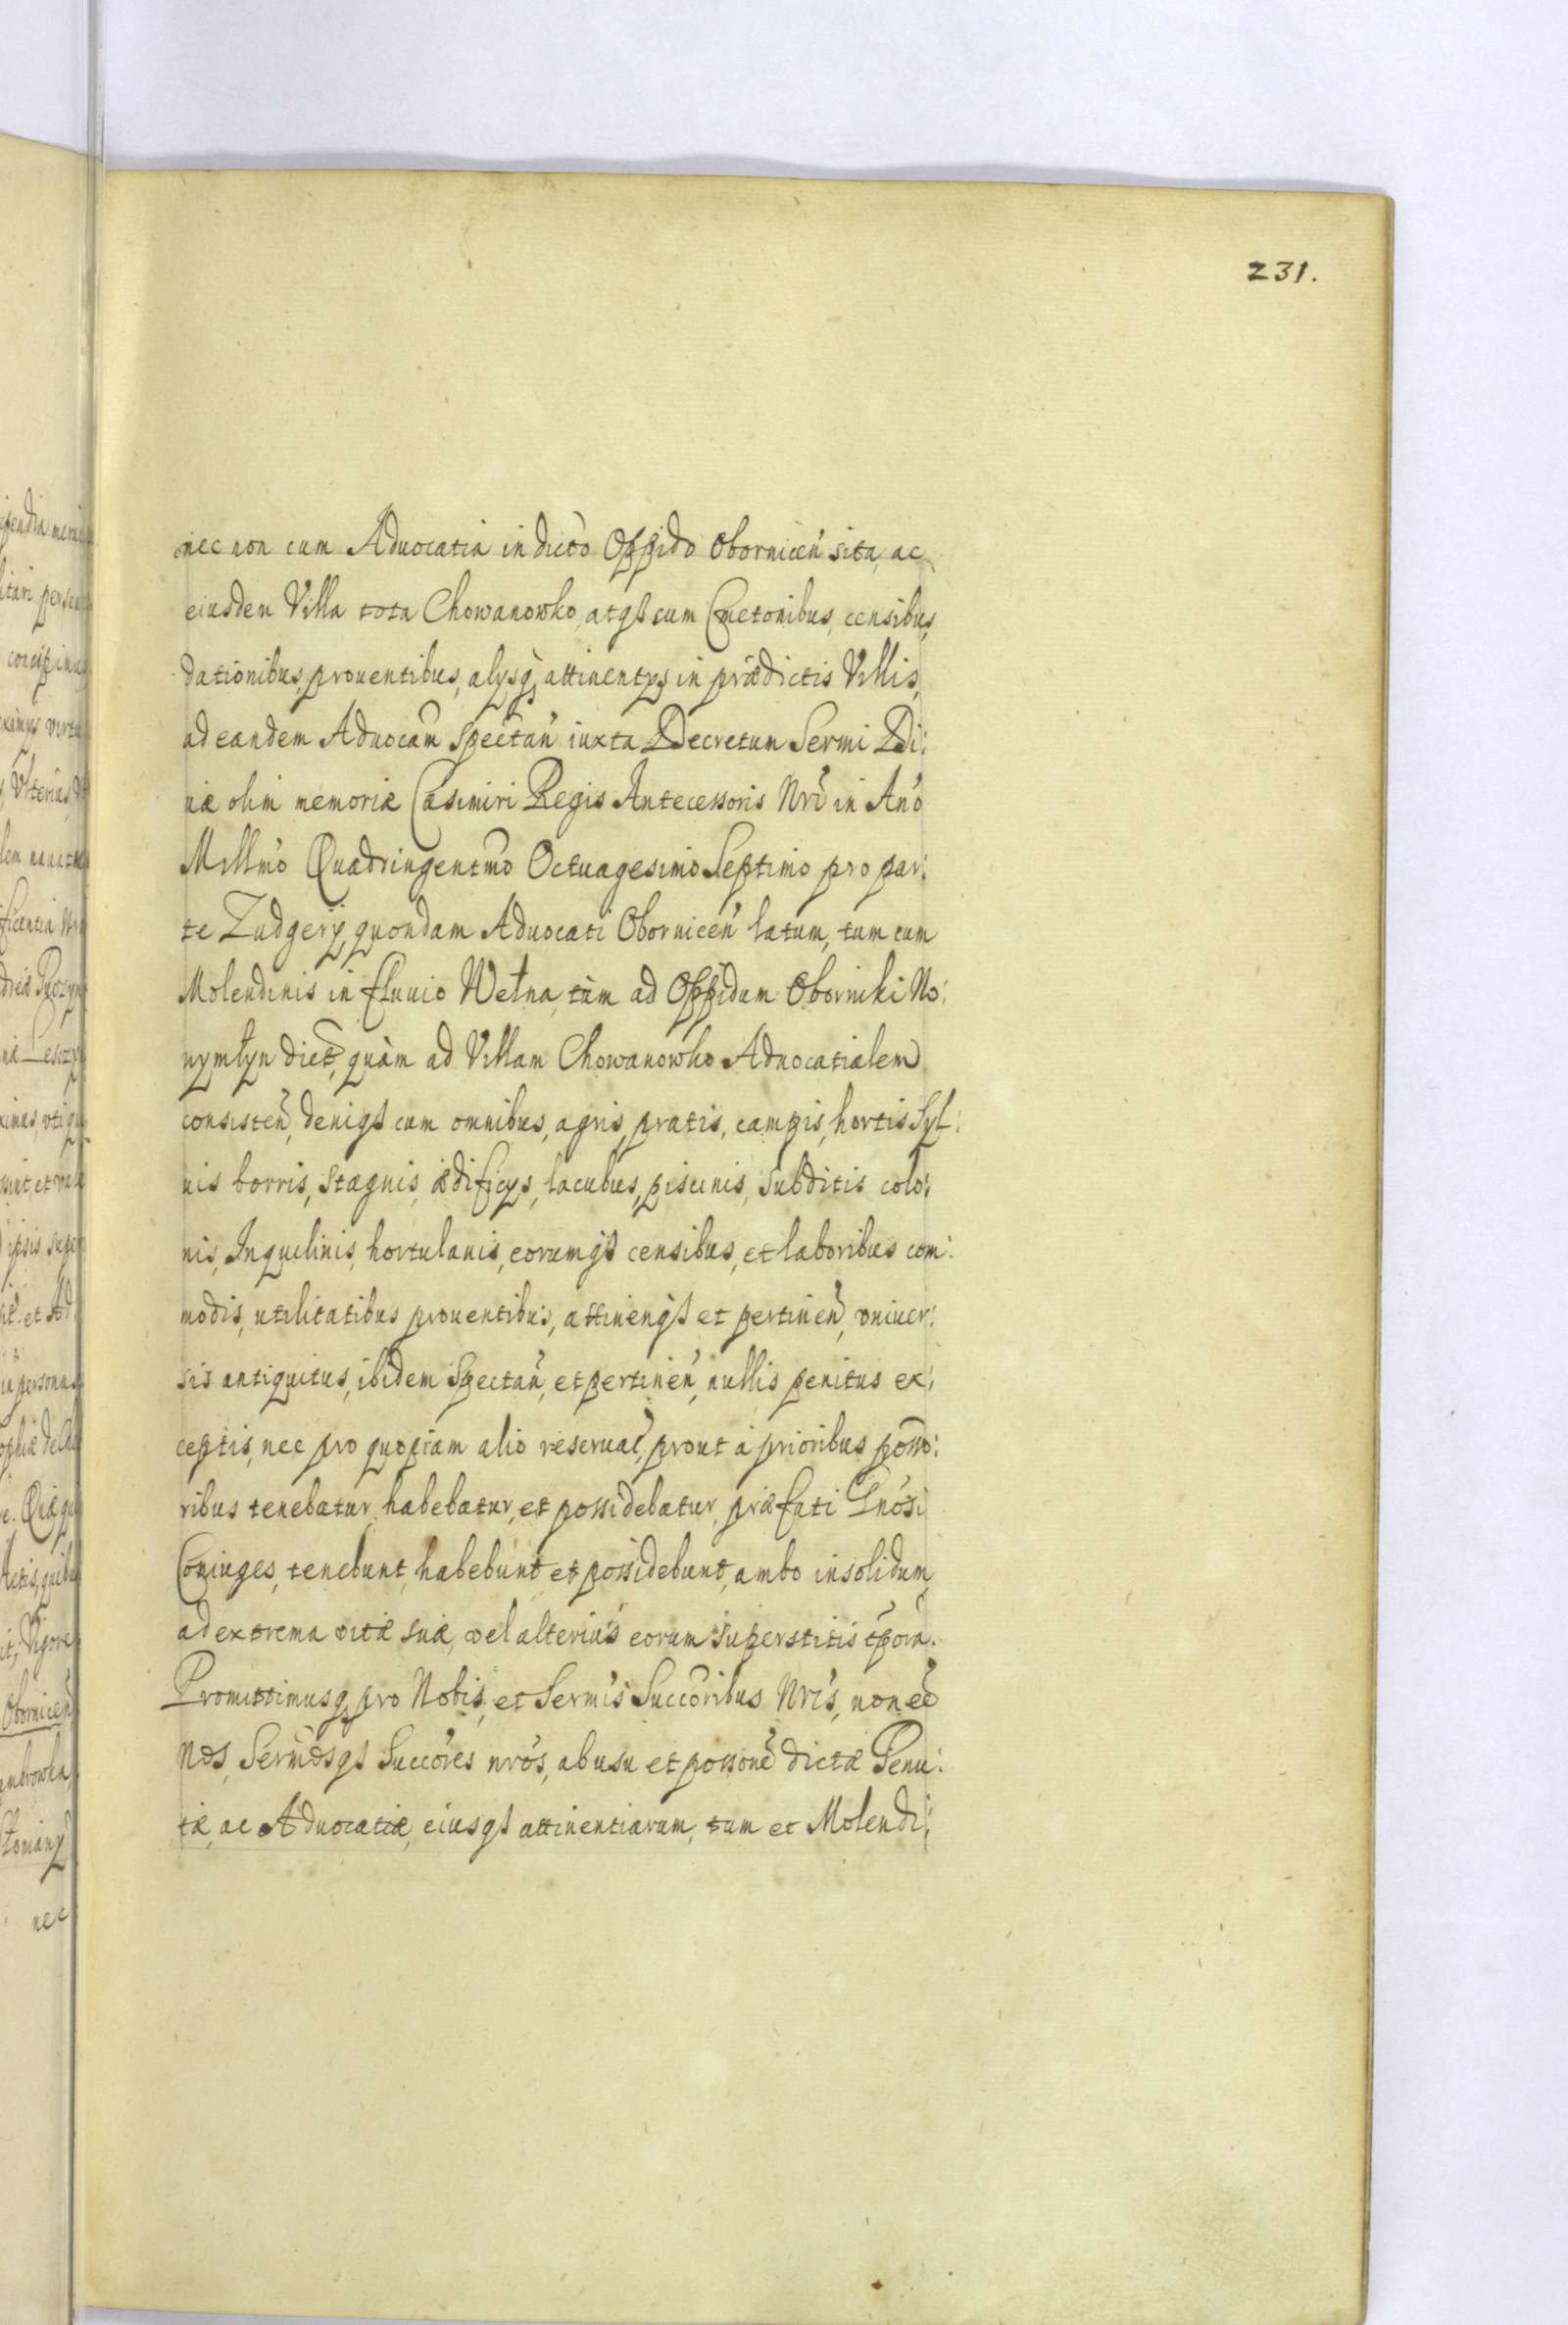 231.
nec non cum Aduocatia in dicto Oppido Obornicen̄ sita, ac
eiusdem Villa tota Chowanowko, atqß cum Cmetonibus, censibus,
dationibus, prouentibus, alysq; attinentys in prædictis Villis,
ad eandem Aduocam̄ spectan̄ iuxta Decretum Sermi Di:
uæ olim memoriæ Casimiri Regis Antecessoris Nri̅ in An̅o
Millm̅o Quadringentm̅o Octuagesimo Septimo pro par:
te Zudgery, quondam Aduocati Obornicen̄ latum, tum cum
Molendinis in fluuio Wełna, tùm ad Oppidum Oborniki No:
nymłyn dict̅, quàm ad Villam Chowanowko Aduocatialem
consisten̄, deniqß cum omnibus, agris, pratis, campis, hortis Syl:
uis borris, stagnis, ædificys, lacubus, piscinis, subditis colo:
nis, Inquilinis, hortulanis, eorumqß censibus, et laboribus com:
modis, utilitatibus prouentibus, attinenqß et pertinen̄, vniuer:
sis antiquitus, ibidem spectan̄, et pertinen̄, nullis penitus ex:
ceptis, nec pro quopiam alio reseruat̅, prout à prioribus posso̅:
ribus tenebatur, habebatur, et possidebatur, præfati Gnosi̅
Coniuges, tenebunt, habebunt et possidebunt, ambo insolidum,
ad extrema vitæ suæ, vel alterius eorum superstitis tpora̅.
Promittimusq; pro Nobis, et Sermis̅ Succoribus̅ Nris̅, non ee̅
Nos, Sermosqß̅ Succores̅ nros̅, ab usu et possone̅ dictæ Tenu:
tæ, ac Aduocatiæ, eiusqß attinentiarum, tum et Molendi: